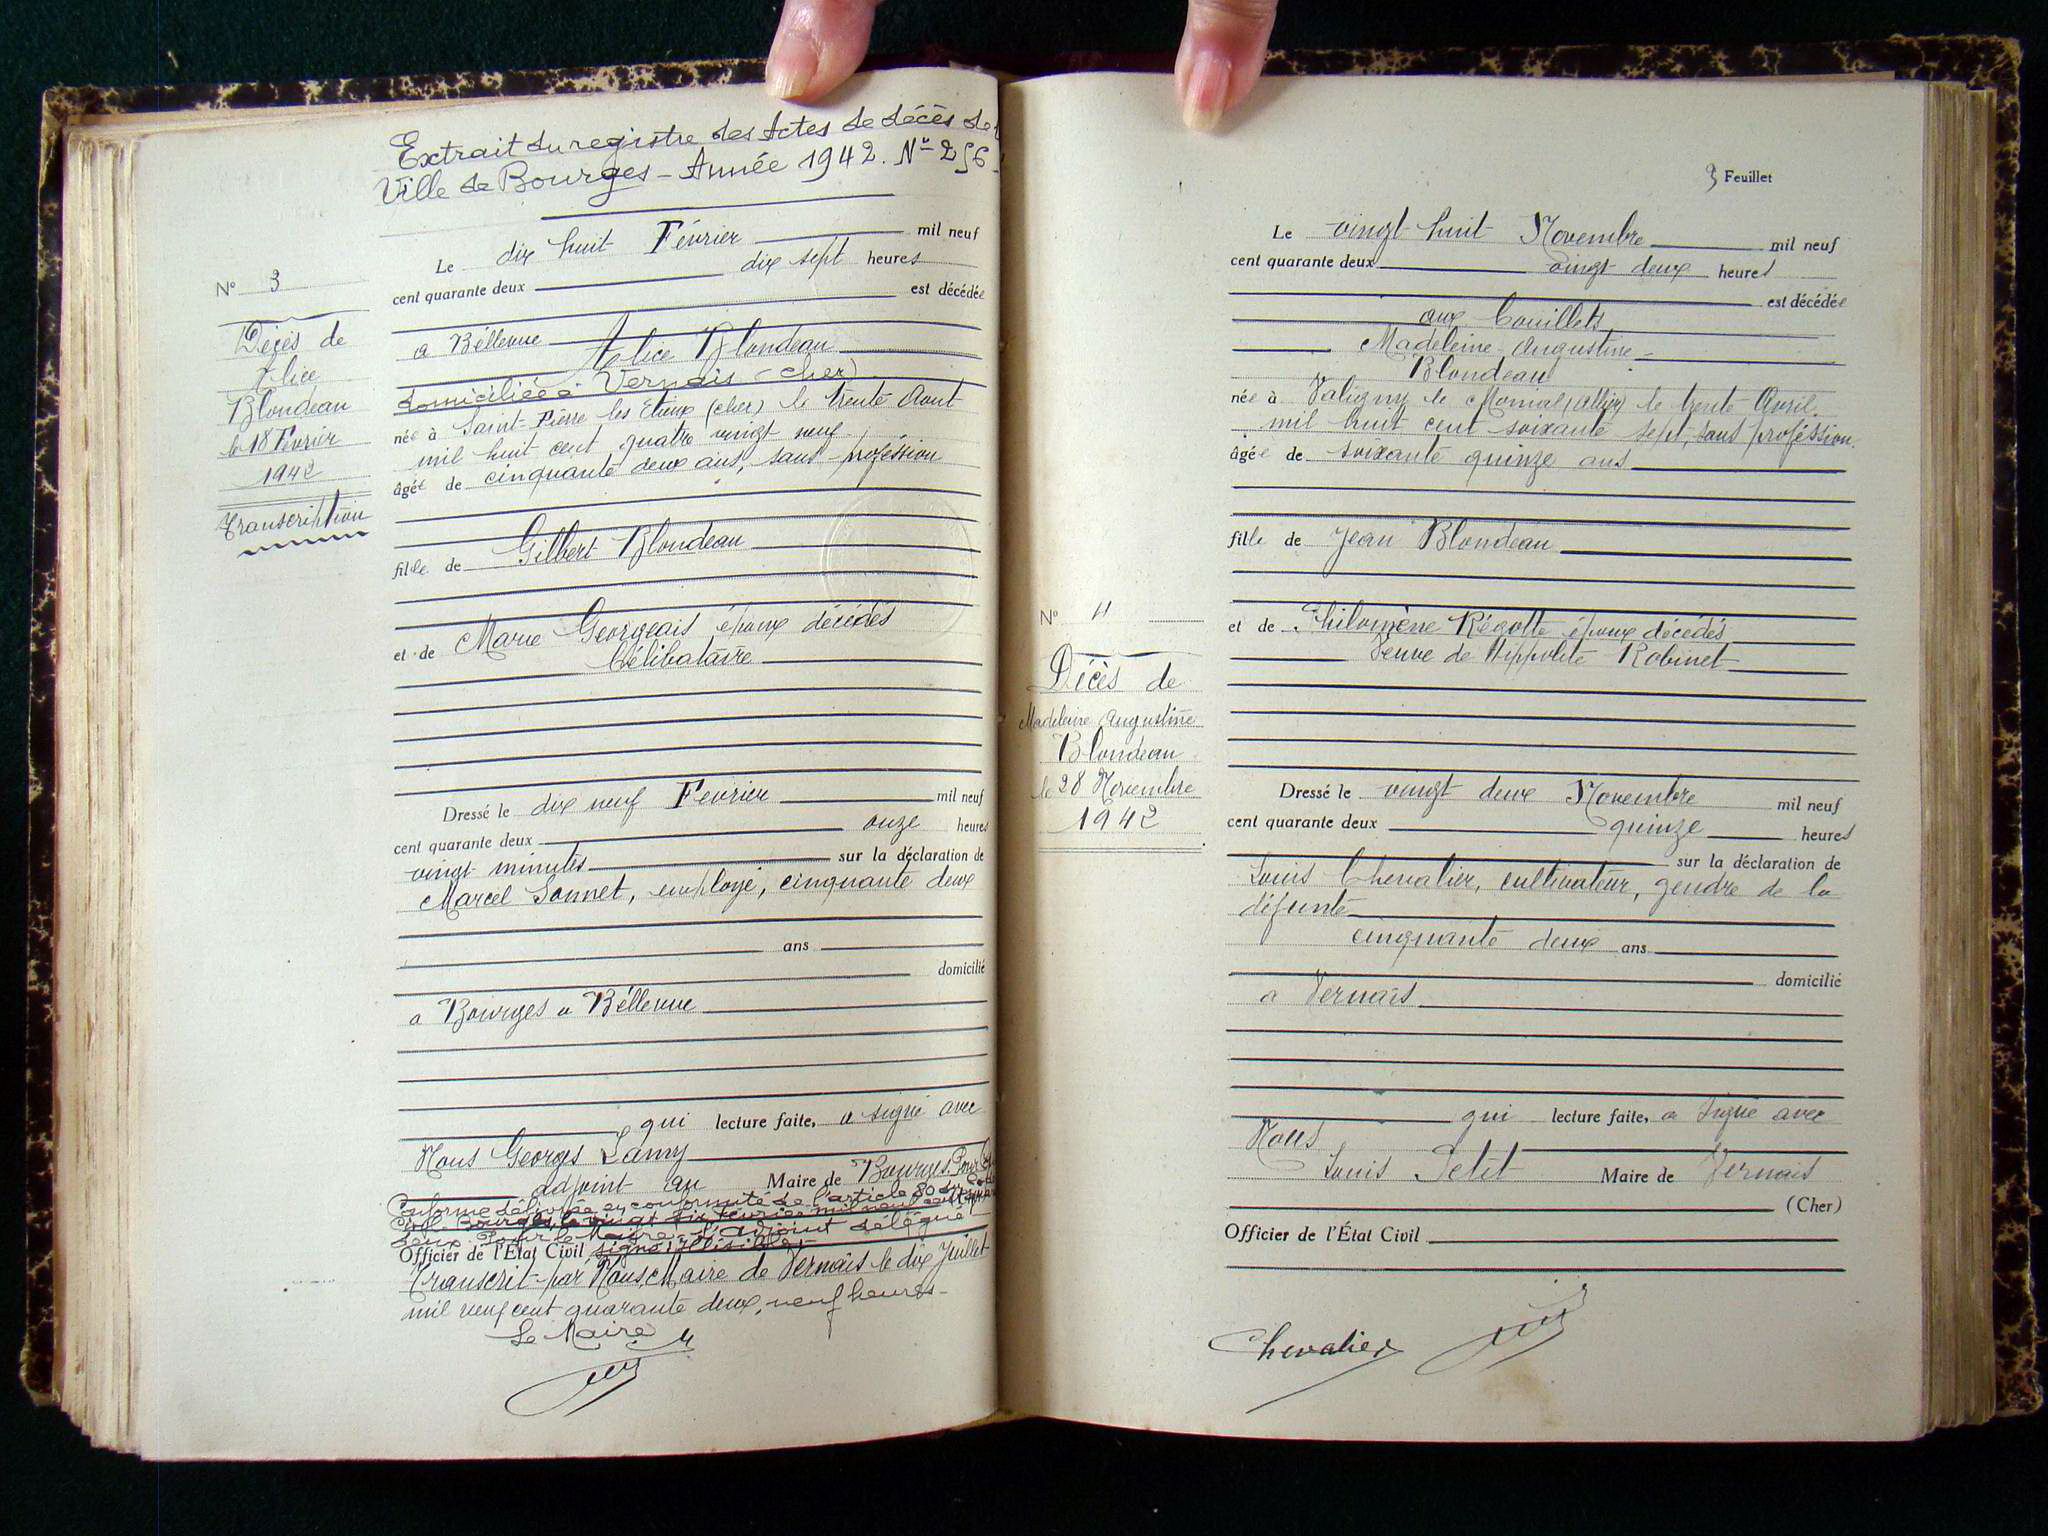 Extrait du registre des Actes de décès de
Ville de Bourges - Année 1942. N° 256
N° 3
Décès de
Alice
Blondeau
le 18 Février
1942
Transcription
Le dix huit Février mil neuf
cent quarante deux dix sept heures
est décédée
a Béllevue Alice Blondeau
domiciliée à Vernais (Cher)
née à Saint-Pierre les Etieux (Cher) le trente Aout
mil huit cent quatre vingt neuf
âgée de cinquante deux ans, sans proféssion
fille de Gilbert Blondeau
et de Marie Georgeais époux décédés
Célibataire
Dressé le dix neuf Février mil neuf
cent quarante deux onze heures
vingt minutes sur la déclaration de
Marcel Sonnet, employé, cinquante deux
ans
domicilié
a Bourges a Béllevue
qui lecture faite, a signé avec
Nous Georges Lamy
adjoint au Maire de Bourges Pour
Conforme délivrée en conformité de l'article 80 du Code
Civil. Bourges, le vingt six février mil neuf cent quarante
deux Pour le Maire, l'adjoint délégué
Officier de l'État Civil signé: Illisible
Transcrit par Nous, Maire de Vernais le dix Juillet
mil neuf cent quarante deux, neuf heures
Le Maire
3 Feuillet
Le vingt huit Novembre mil neuf
cent quarante deux vingt deux heures
est décédée
aux Couillets
Madeleine Augustine
Blondeau
née à Valigny le Monial (Allier) le trente Avril
mil huit cent soixante sept, sans proféssion
âgée de soixante quinze ans
fille de Jean Blondeau
N° 4
et de Philomène Régotte époux décédés
Veuve de Hippolite Robinet
Décès de
Madeleine Augustine
Blondeau
le 28 Novembre
1942
Dressé le vingt deux Novembre mil neuf
cent quarante deux quinze heures
sur la déclaration de
Louis Chevalier, cultivateur, gendre de la
défunte
cinquante deux ans
domicilié
a Vernais
qui lecture faite, a signé avec
Nous
Louis Petit Maire de Vernais
(Cher)
Officier de l'État Civil
Chevalier